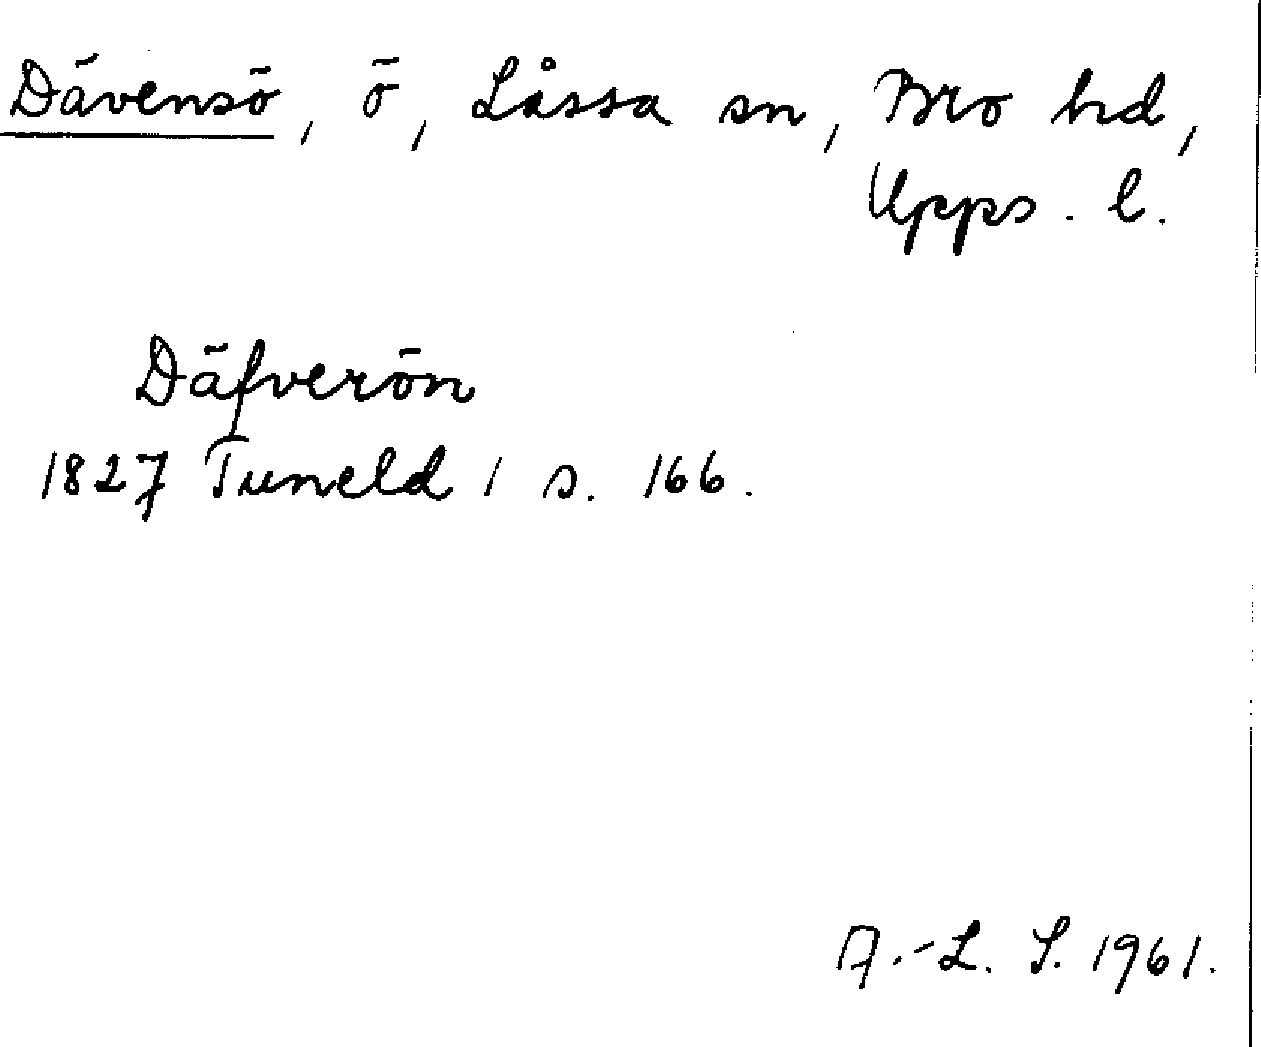 Dävensö, ö, Låssa sn, Bro hd,
Upps. l.
Däfverön
1827 Tuneld 1 s. 166.
A.-L. S. 1961.